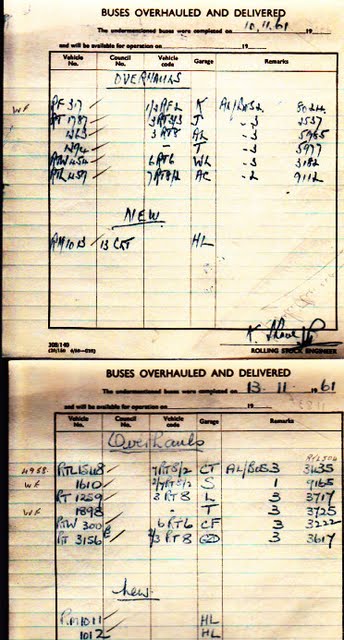 BUSES OVERHAULED AND DELIVERED
The undermentioned buses were completed on 10.11.61 19
and will be available for operation on 19
Vehicle No. Council No. Vehicle code Garage Remarks
OVERHAULS
WF RF 317 1/2RF2 K AL/BOS2
RT 1787 J -3 2537
463 3RT8 AL -3
494 - T -3 5977
RTW 454 6RT6 WL -3 3182
RTL 459 AC -2 9112
NEW
RM1013 13 CRT HL
ROLLING STOCK ENGINEER
BUSES OVERHAULED AND DELIVERED
The undermentioned buses were completed on 13.11 1961
and will be available for operation on 19
Vehicle No. Council No. Vehicle code Garage Remarks
Overhauls
4958 RTL1548 7RT5/2 CT AL/BOS3 3435
WF 1610 2/7RT5/2 S 1 9165
RT 1259 3RT8 L 3 3717
WF 1898 - T 3 3725
RTW 300 6RT6 CF 3 3222
RT 3156 2/3RT8 GD 3 3617
New
RM1011 HL
1012 HL